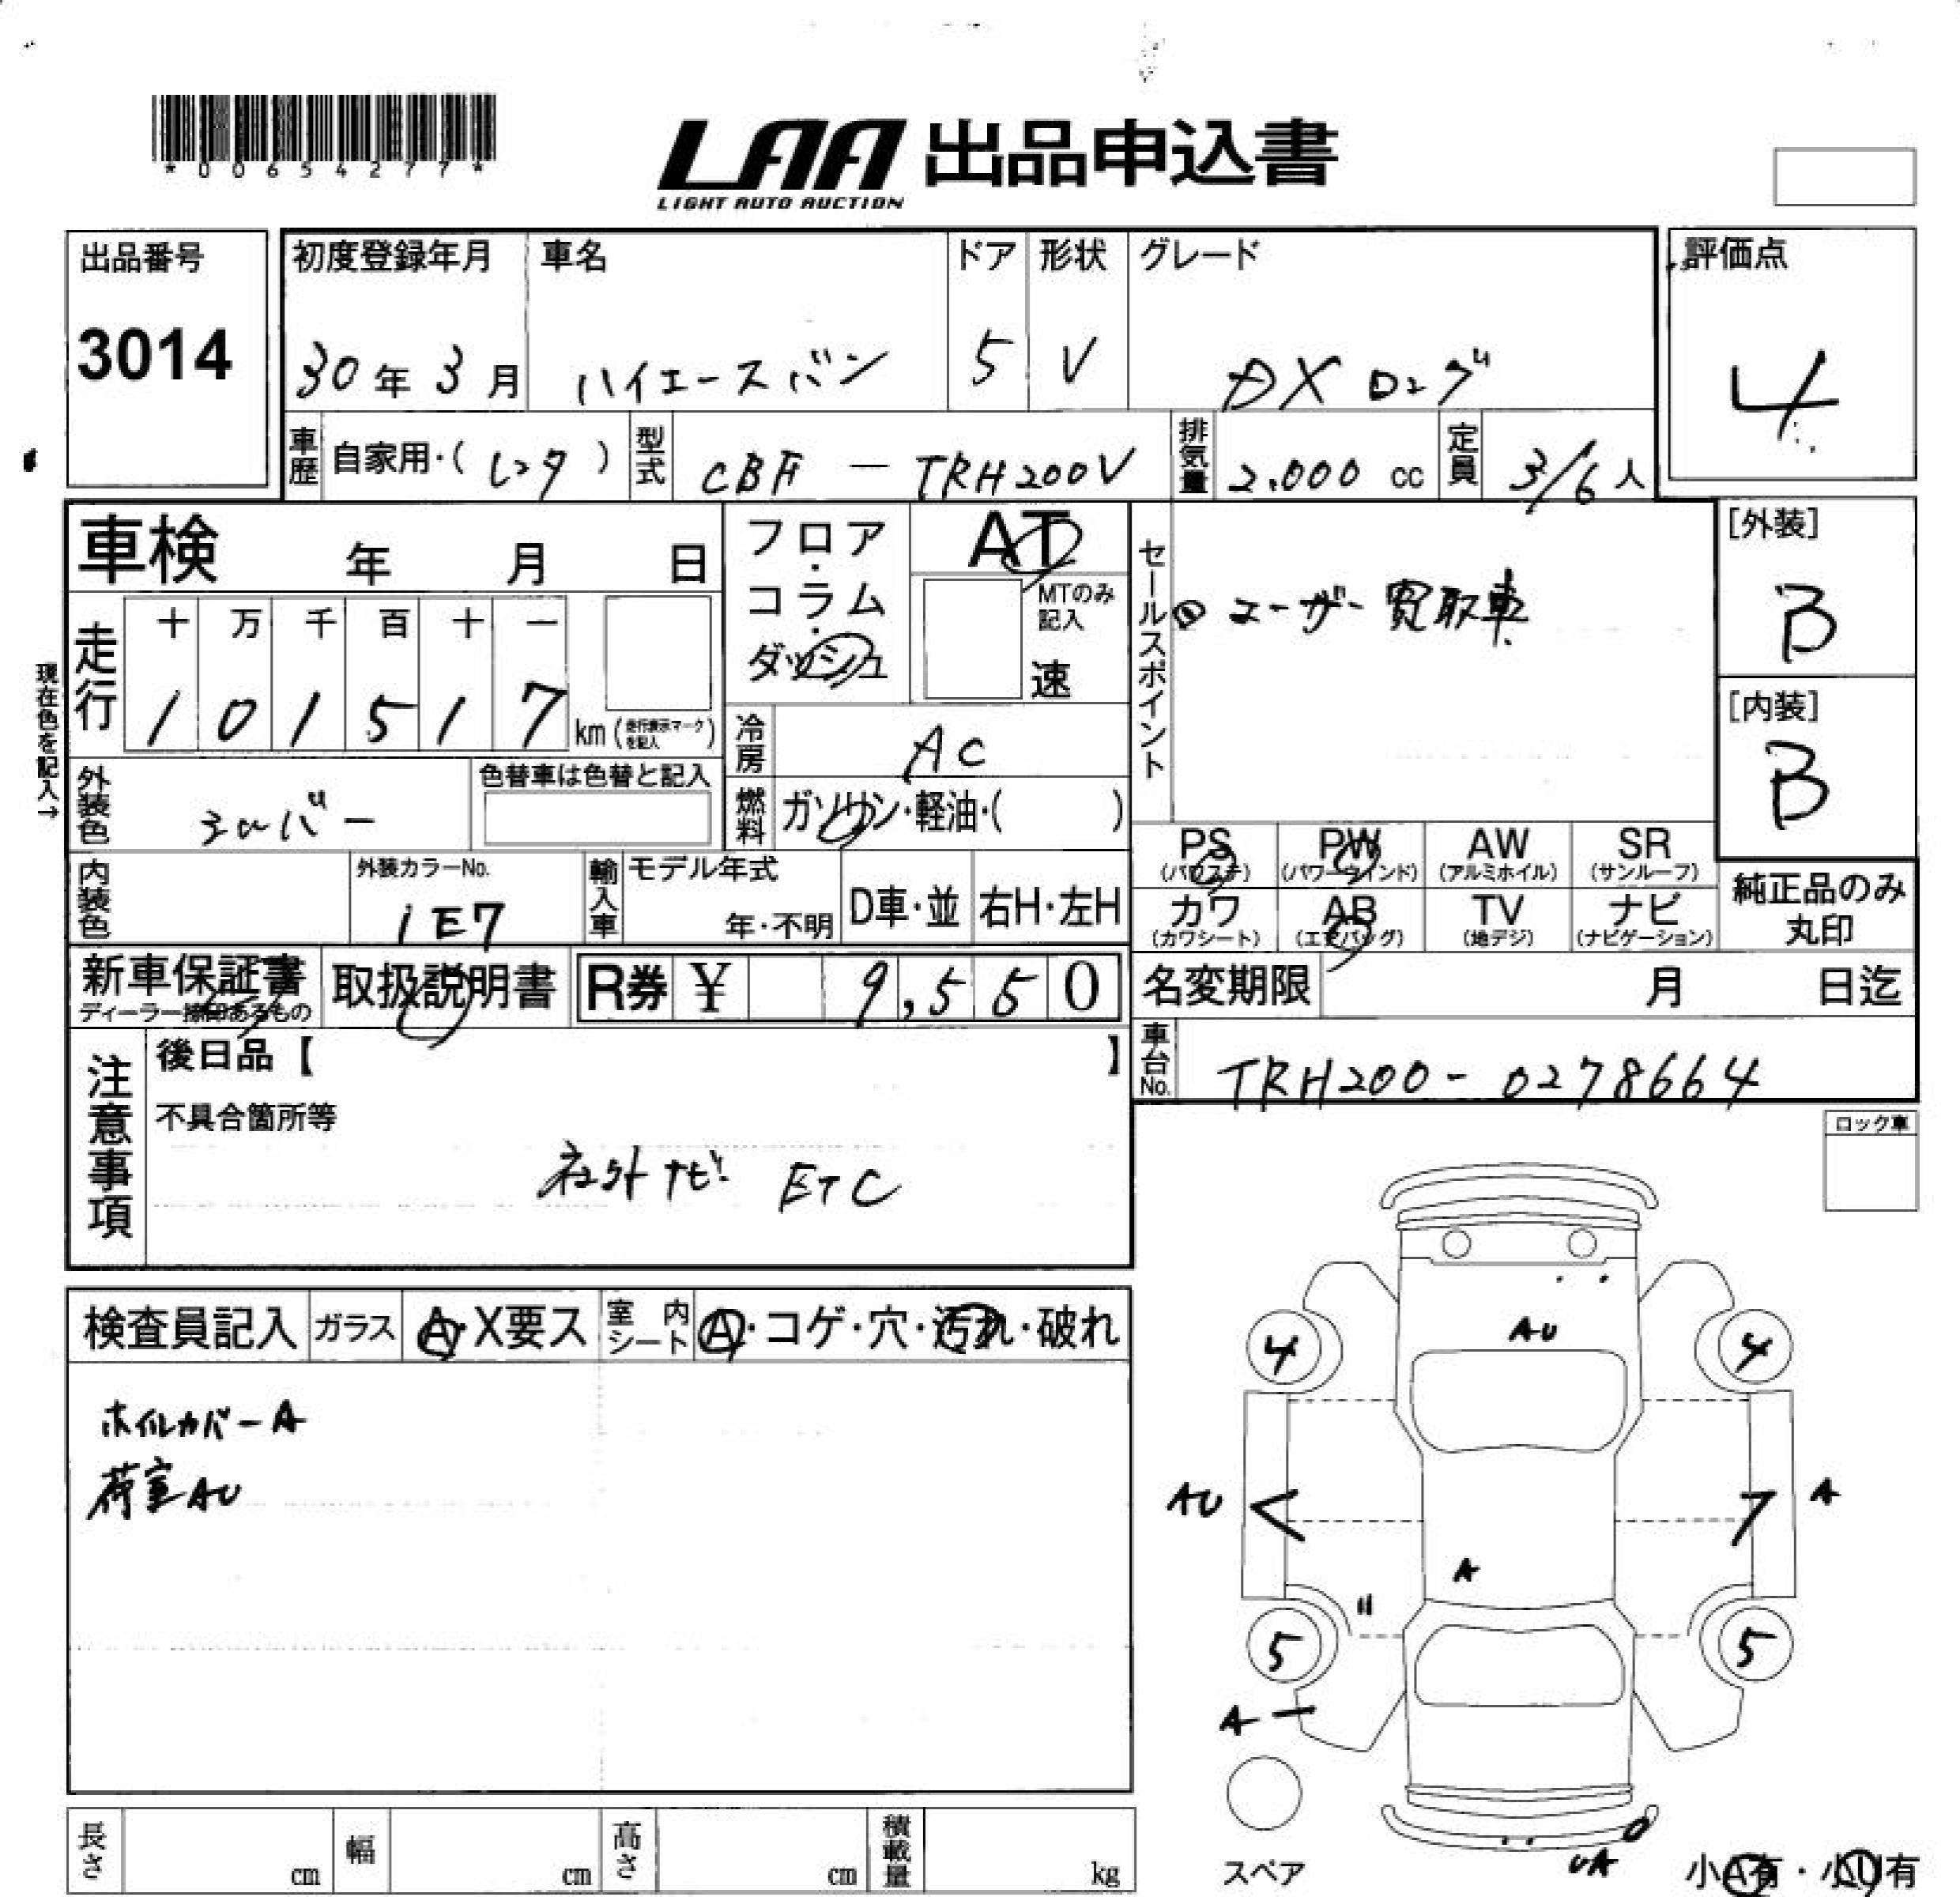 *00654277*
LAA 出品申込書
LIGHT AUTO AUCTION
出品番号
3014
初度登録年月
30年 3月
車名
ハイエースバン
ドア
5
形状
V
グレード
DX ロング
評価点
4
車歴 自家用・(レンタ)
型式 CBF − TRH200V
排気量 2.000 cc
定員 3/6人
車検 年 月 日
フロア・コラム・ダッシュ
AT
MTのみ記入
速
セールスポイント
① ユーザー買取車
[外装]
B
[内装]
B
現在色を記入→
走行
十 万 千 百 十 一
1 0 1 5 1 7 km (走行表示マークを記入)
冷房 AC
外装色 シルバー
色替車は色替と記入
燃料 ガソリン・軽油・( )
PS (パワステ)
PW (パワーウインド)
AW (アルミホイル)
SR (サンルーフ)
カワ (カワシート)
AB (エアバッグ)
TV (地デジ)
ナビ (ナビゲーション)
純正品のみ
丸印
内装色
外装カラーNo.
1E7
輸入車
モデル年式
年・不明
D車・並
右H・左H
新車保証書
ディーラー捺印あるもの
取扱説明書
R券 ¥ 9,550
名変期限 月 日迄
車台No. TRH200-0278664
注意事項
後日品【 】
不具合箇所等
社外ナビ ETC
ロック車
検査員記入
ガラス A・X要ス
室内シート A・コゲ・穴・汚れ・破れ
ホイルカバーA
荷室AU
AU
4 4
AU A
A
"
5 5
A
スペア
UA
小A有・小U有
長さ cm
幅 cm
高さ cm
積載量 kg